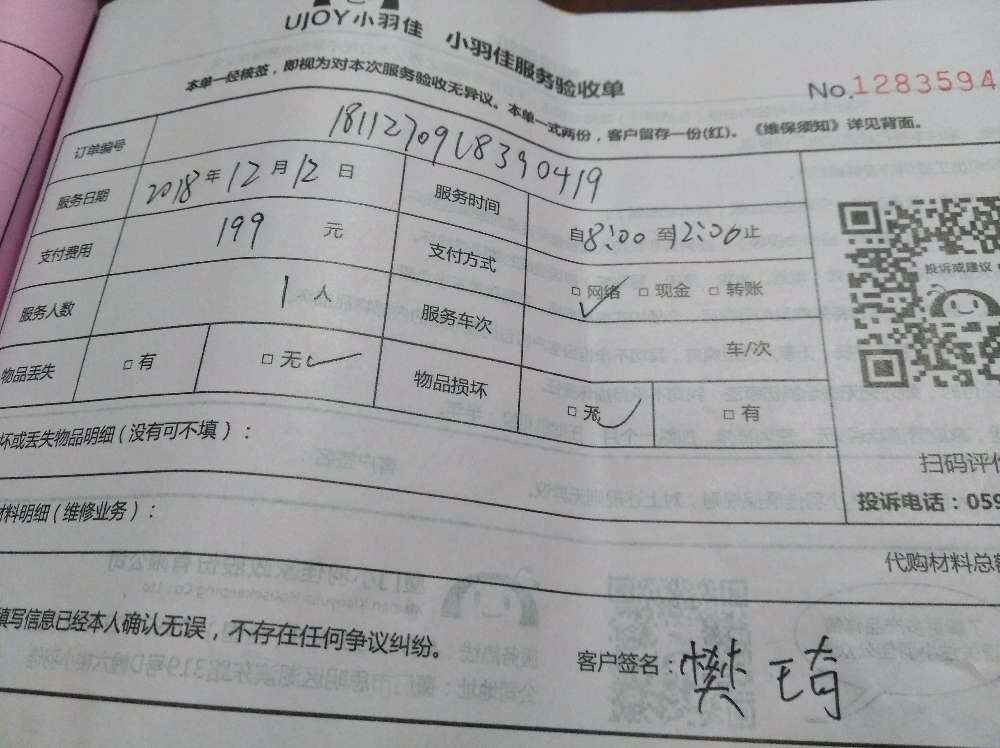 UJOY小羽佳 小羽佳服务验收单
No.1283594
本单一经核签，即视为对本次服务验收无异议。本单一式两份，客户留存一份(红)。《维保须知》详见背面。
订单编号 18112709183390419
服务日期 2018年12月12日 服务时间 自8:00至12:00止
支付费用 199 元 支付方式 □网络 □现金 □转账
服务人数 1人 服务车次 车/次
物品丢失 □有 □无 物品损坏 □无 □有
投诉或建议
坏或丢失物品明细(没有可不填)：
扫码评价
投诉电话：059
材料明细(维修业务)：
代购材料总额
填写信息已经本人确认无误，不存在任何争议纠纷。
客户签名：樊琦